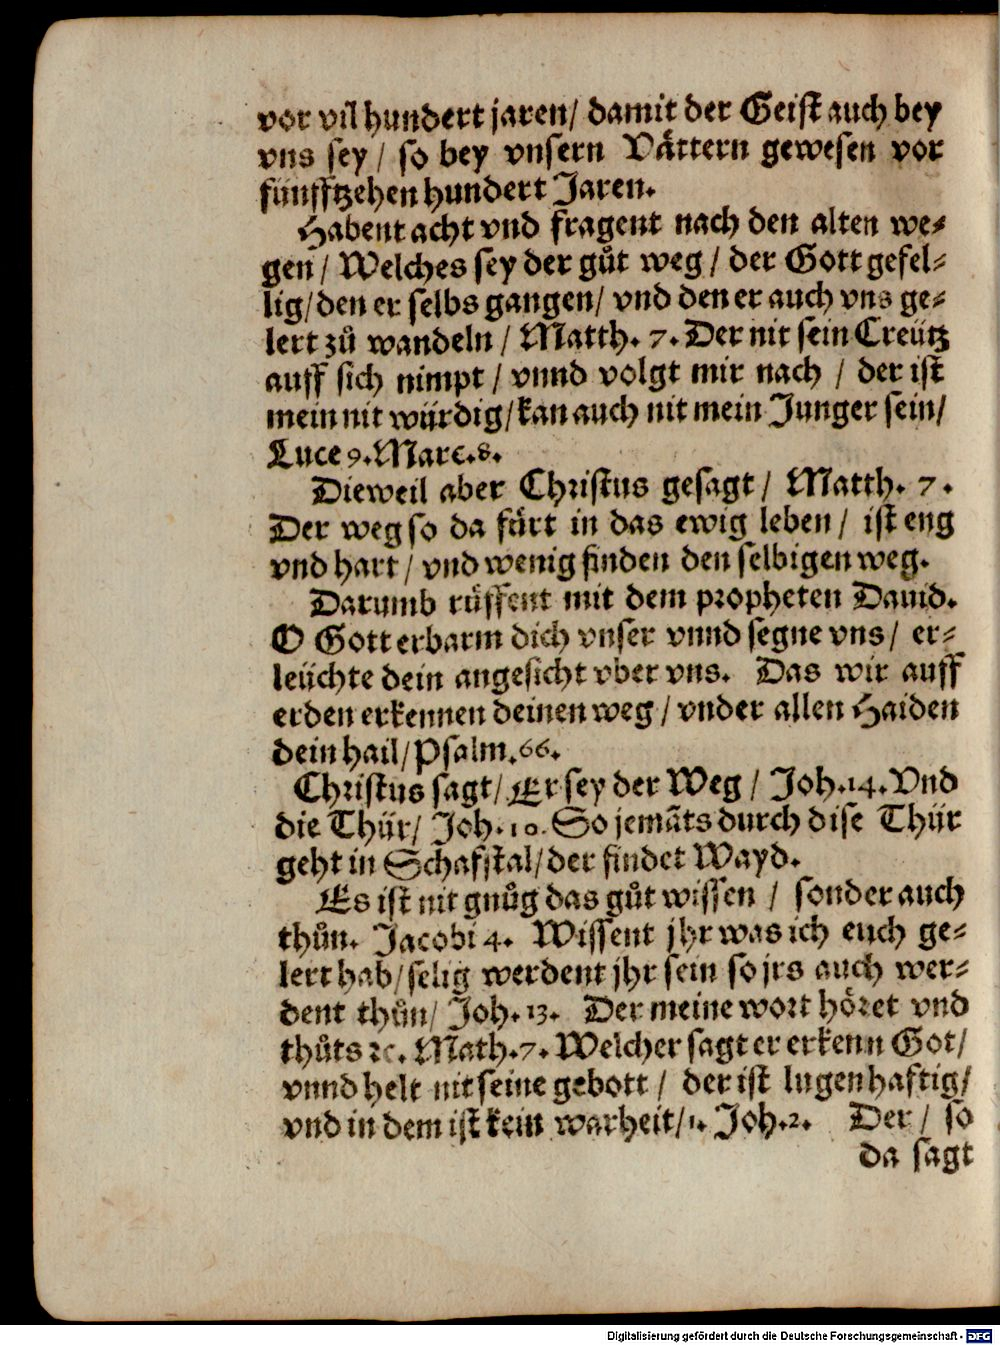 vor vil hundert jaren/ damit der Geist auch bey
vns sey / so bey vnsern Vättern gewesen vor
fünfftzehen hundert Jaren.
Habent acht vnd fragent nach den alten we⸗
gen / Welches sey der gůt weg / der Gott gefel⸗
lig/ den er selbs gangen/ vnd den er auch vns ge⸗
lert zů wandeln / Matth. 7. Der nit sein Creütz
auff sich nimpt / vnnd volgt mir nach / der ist
mein nit würdig/ kan auch nit mein Junger sein/
Luce 9. Marc. 8.
Dieweil aber Christus gesagt / Matth. 7.
Der weg so da fürt in das ewig leben / ist eng
vnd hart / vnd wenig finden den selbigen weg.
Darumb růffent mit dem propheten Dauid.
O Gott erbarm dich vnser vnnd segne vns / er⸗
leüchte dein angesicht vber vns. Das wir auff
erden erkennen deinen weg / vnder allen Haiden
dein hail/ Psalm. 66.
Christus sagt/ Er sey der Weg / Joh. 14. Vnd
die Thür/ Joh. 10. So jemāts durch dise Thür
geht in Schafstal/ der findet Wayd.
Es ist nit gnůg das gůt wissen / sonder auch
thůn. Jacobi 4. Wissent jhr was ich euch ge⸗
lert hab/ selig werdent jhr sein so jrs auch wer⸗
dent thůn/ Joh. 13. Der meine wort höret vnd
thůts ꝛc. Math. 7. Welcher sagt er erkenn Got/
vnnd helt nit seine gebott / der ist lugenhafftig/
vnd in dem ist kein warheit/ 1. Joh. 2. Der / so
da sagt
Digitalisierung gefördert durch die Deutsche Forschungsgemeinschaft - DFG